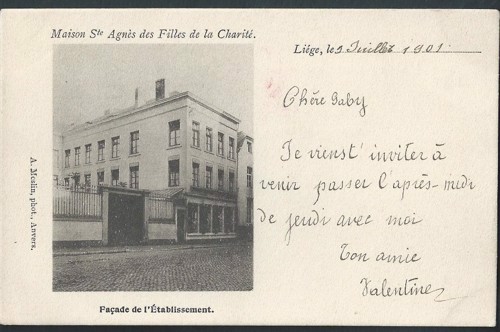 Maison Ste Agnès des Filles de la Charité.
Liége, le 9 Juillet 1901
Chère Gaby
Je viens t'inviter à
venir passer l'après-midi
de jeudi avec moi
Ton amie
Valentine
A. Meslin, phot., Anvers.
Façade de l'Établissement.